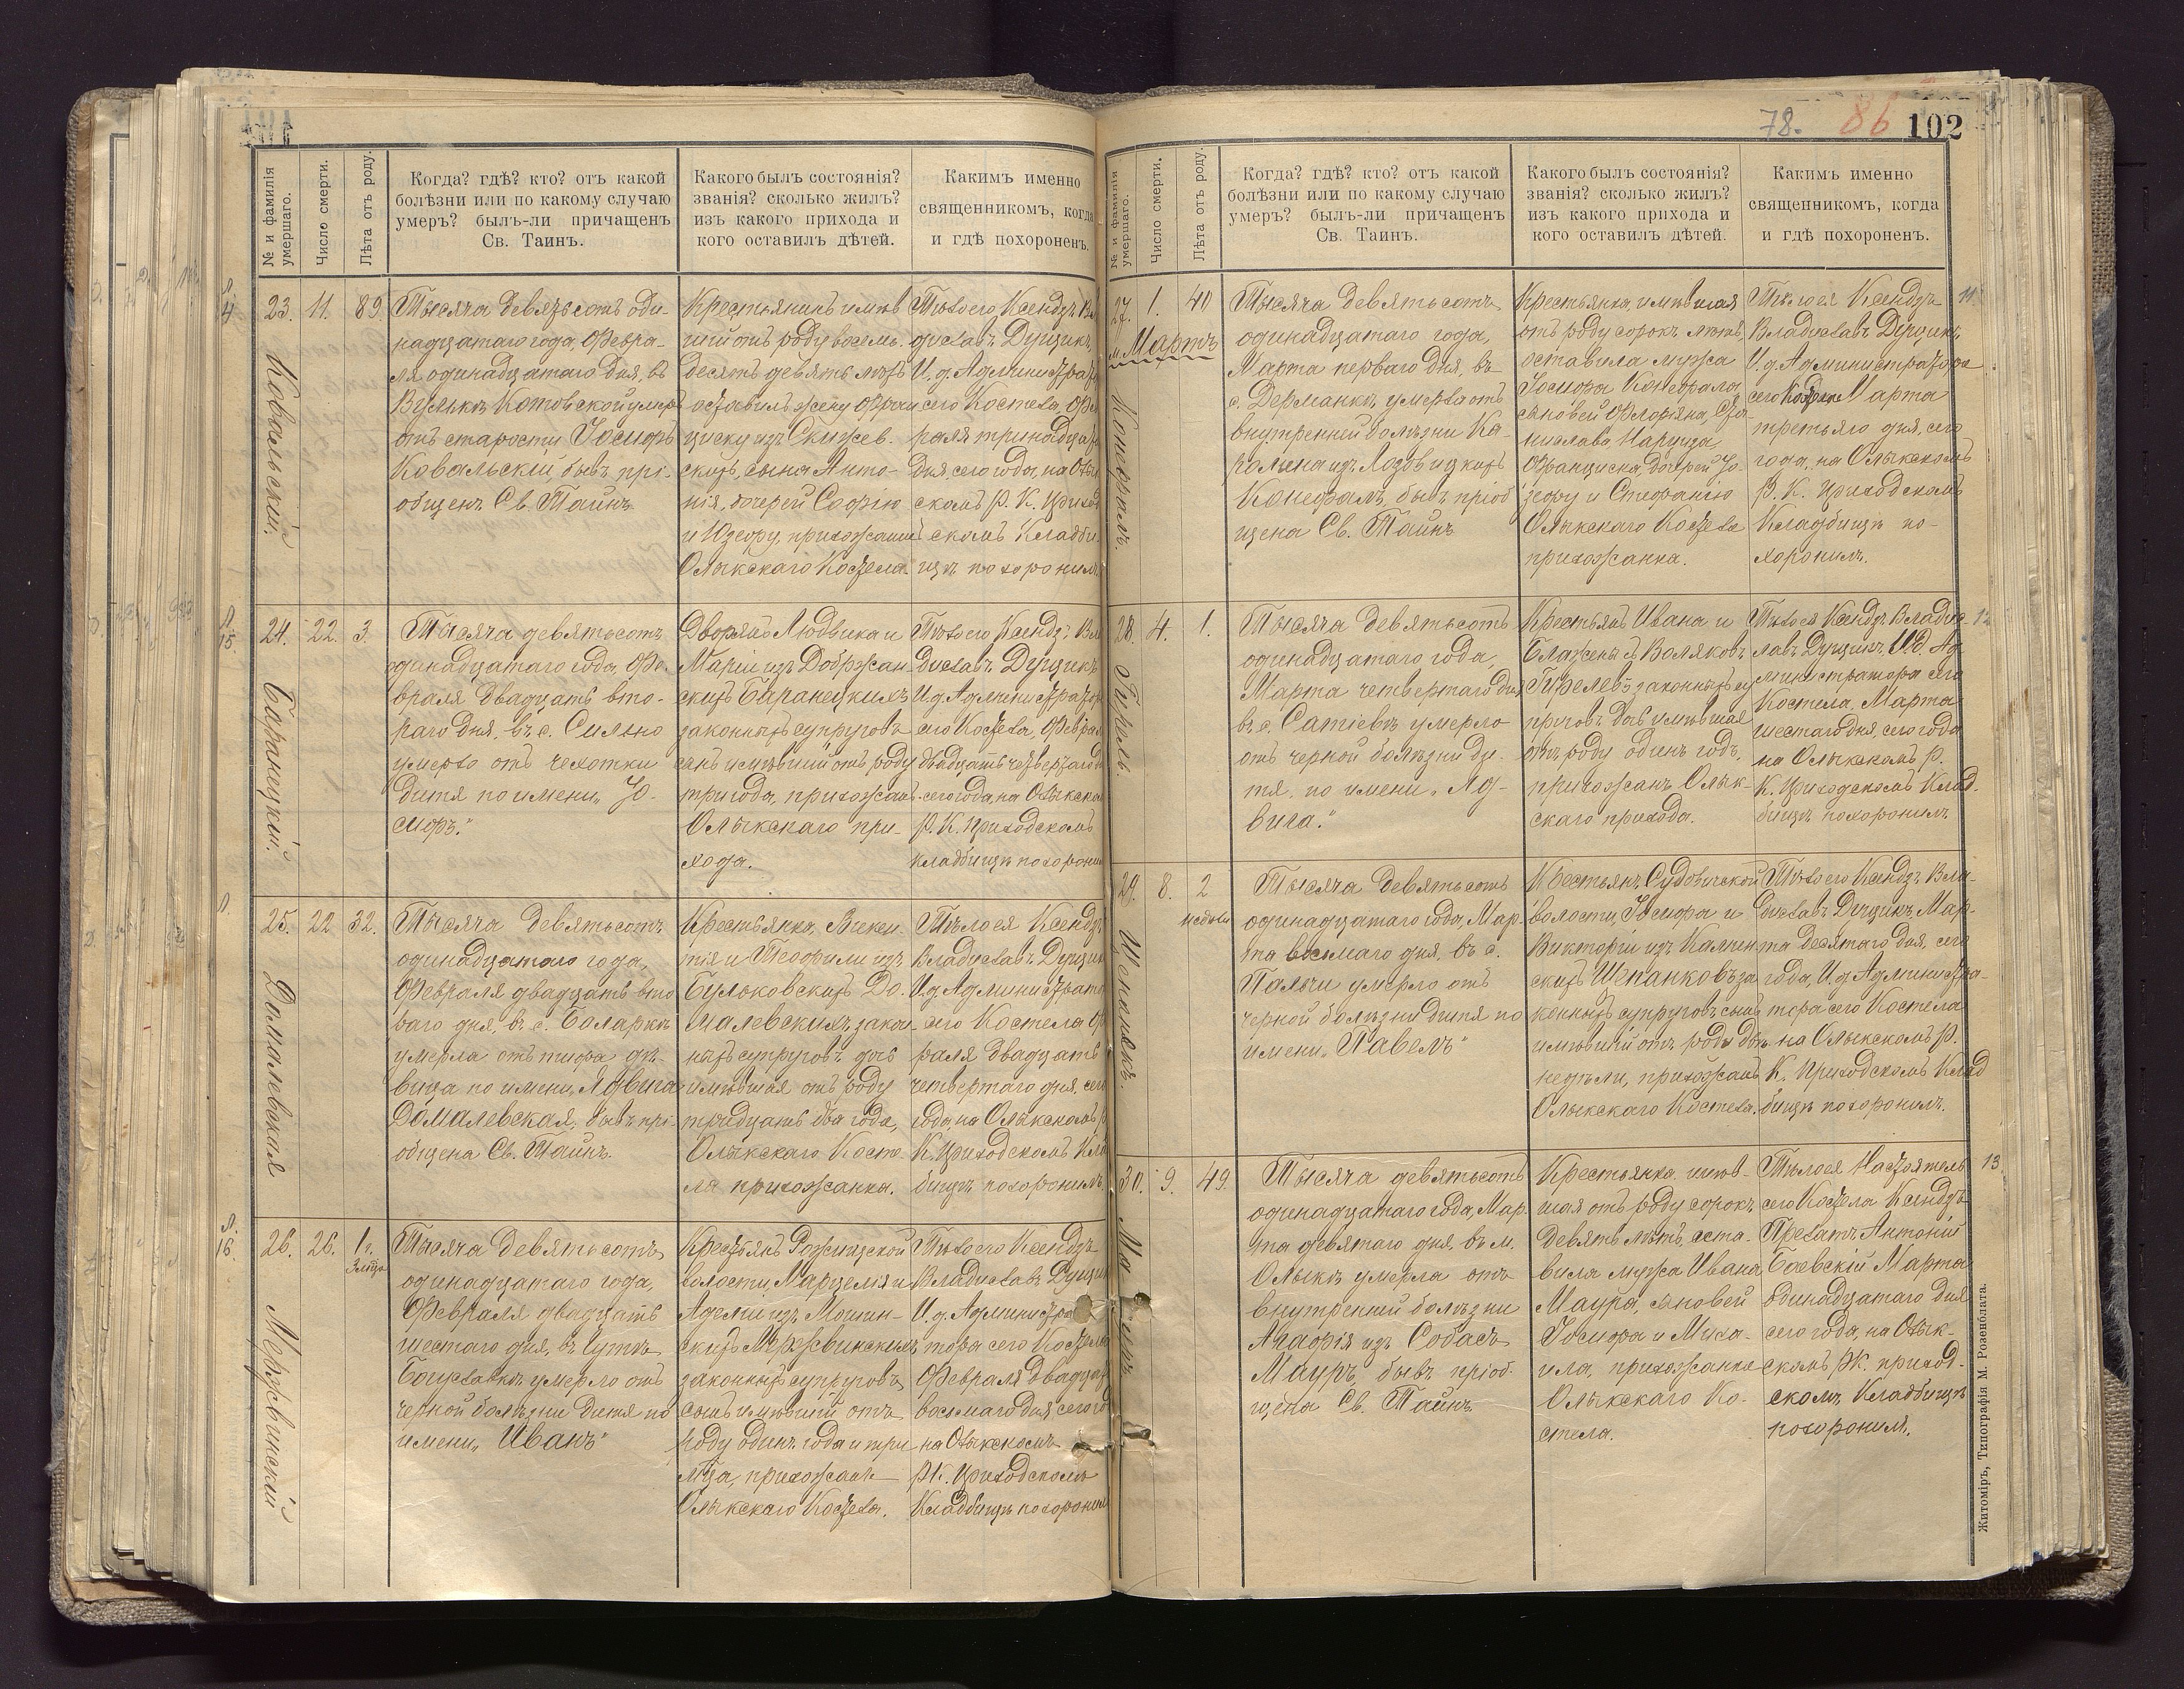 78. 86 102
№ и фамилія умершаго.
Число смерти.
Лѣта отъ роду.
Когда? гдѣ? кто? отъ какой
болѣзни или по какому случаю
умеръ? былъ-ли причащенъ
Св. Таинъ.
Какого былъ состоянія?
званія? сколько жилъ?
изъ какого прихода и
кого оставилъ дѣтей.
Какимъ именно
священникомъ, когда
и гдѣ похороненъ.
23. 11. 89.
Ковальскій.
Тысяча девятьсотъ оди-
надцатаго года, Февра-
ля одинадцатаго дня, въ
Вулькѣ Котовской умеръ
отъ старости Іосифъ
Ковальскій, бывъ прі-
общенъ Св. Таинъ
Крестьянинъ имѣв
шій отъ роду восемь-
десятъ девять лѣтъ
оставилъ жену Фран
циску изъ Скижев-
скихъ, сына Анто-
нія, дочерей Софію
и Юзефу, прихожанинъ
Олыкскаго Костела
Тѣло его Ксендзъ Вла
диславъ Дущикъ,
И. д. Администрато
сего Костела, Фев
раля тринадцат
дня, сего года, на Олык
скомъ Р. К. Приход
скомъ Кладби-
щѣ похоронилъ
24. 22. 3.
Баранецкій.
Тысяча девятьсотъ
одинадцатаго года, Фе-
враля двадцать вто-
раго дня, въ с. Сильно
умерло отъ чехотки
дитя по имени „Іо-
сифъ."
Дворянъ Людвика и
Маріи изъ Добржан-
скихъ Баранецкихъ
законныхъ супруговъ
сынъ имѣвшій отъ роду
три года, прихожанъ
Олыкскаго при-
хода.
Тѣло его Ксендзъ Вла
диславъ Дущикъ
И. д. Администратор
сего Костела, Феврал
двадцать четвертаго д
сего года, на Олыкском
Р. К. Приходскомъ
кладбищѣ похоронил
25. 22 32.
Домалевская
Тысяча девятьсотъ
одинадцатаго года,
Февраля двадцать вто
раго дня, въ с. Боларкѣ
умерла отъ тифа дѣ-
вица по имени „Ядвига
Домалевская, бывъ прі-
общена Св. Таинъ.
Крестьянка, Викен-
тія и Теофили изъ
Бульковскихъ До-
малевскихъ закон-
ныхъ супруговъ дочь
имѣвшая отъ роду
тридцать два года,
Олыкскаго Косте-
ла прихожанка.
Тѣло ея Ксендзъ
Владиславъ Дущик
И. д. Администрато
сего Костела Фев
раля двадцать
четвертаго дня, сего
года, на Олыкскомъ Р.
К. Приходскомъ Кла
бищѣ похоронилъ.
26. 26. 1 г.
3 м-ца
Мержвинскій
Тысяча девятьсотъ
одинадцатаго года,
Февраля двадцать
шестаго дня, въ Гутѣ
Богуславкѣ умерло отъ
черной болѣзни дитя по
имени „Иванъ"
Крестьянъ Рожищской
волости, Марцелія и
Аделіи изъ
скихъ Мержвинскихъ
законныхъ супруговъ
сынъ имѣвшій отъ
роду одинъ годъ и три
м-ца, прихожанъ
Олыкскаго Костела.
Тѣло его Ксендзъ
Владиславъ Дущик
И. д. Администра
тора сего Костела
Февраля двадцат
восьмаго дня, сего го
на Олыкскомъ
Р. К. Приходскомъ
Кладбищѣ похоронил
№ и фамилія умершаго.
Число смерти.
Лѣта отъ роду.
Когда? гдѣ? кто? отъ какой
болѣзни или по какому случаю
умеръ? былъ-ли причащенъ
Св. Таинъ.
Какого былъ состоянія?
званія? сколько жилъ?
изъ какого прихода и
кого оставилъ дѣтей.
Какимъ именно
священникомъ, когда
и гдѣ похороненъ.
27. 1. 40
м. Мартъ
Конефалъ.
Тысяча девятьсотъ
одинадцатаго года,
Марта перваго дня, въ
с. Дерманкѣ умерла отъ
внутренней болѣзни Ка-
ролина изъ Лозовицкихъ
Конефалъ, бывъ пріоб
щена Св. Таинъ
Крестьянка, имѣвшая
отъ роду сорокъ лѣтъ,
оставила мужа
Іосифа Конефала,
сыновей Флоріяна, Ста-
нислава Нарциза,
Франциска, дочерей Іо-
зефу и Стефанію
Олыкскаго Костела
прихожанка.
Тѣло ея Ксендзъ
Владиславъ Дущикъ
И. д. Администратора
сего Костела Марта
третьяго дня, сего
года, на Олыкскомъ
Р. К. Приходскомъ
Кладбищѣ по-
хоронилъ.
28. 4. 1.
Гирель.
Тысяча девятьсотъ
одинадцатаго года,
Марта четвертаго дня
въ с. Сатіевѣ умерло
отъ черной болѣзни ди-
тя, по имени „Яд-
вига."
Крестьянъ Ивана и
Блажены съ Воляковъ
Гирелевъ законныхъ су
пруговъ дочь имѣвшая
отъ роду одинъ годъ,
прихожанъ Олык-
скаго прихода.
Тѣло ея Ксендзъ Владис-
лавъ Дущикъ, И. д. Ад
министратора сего
Костела, Марта
шестаго дня, сего года
на Олыкскомъ Р.
К. Приходскомъ Клад-
бищѣ похоронилъ
12
29. 8. 2
недѣли
Щепанякъ.
Тысяча девятьсотъ
одинадцатаго года, Мар-
та восьмаго дня, въ с.
Пальчи умерло отъ
черной болѣзни дитя по
имени „Павелъ"
Крестьянъ Судовичской
волости Іосифа и
Викторіи изъ Камин-
скихъ Щепанковъ за
конныхъ супруговъ сынъ
имѣвшій отъ роду двѣ
недѣли, прихожанъ
Олыкскаго Костела.
Тѣло его Ксендзъ Вла-
диславъ Дущикъ, Мар-
та десятаго дня, сего
года, И. д. Администра-
тора сего Костела
на Олыкскомъ Р.
К. Приходскомъ Клад
бищѣ похоронилъ.
30. 9. 49.
Тысяча девятьсотъ
одинадцатаго года, Мар
та девятаго дня, въ м.
Олыкѣ умерла отъ
внутренней болѣзни
Агафія изъ Собасъ
Мауръ, бывъ пріоб-
щена Св. Таинъ
Крестьянка имѣв-
шая отъ роду сорокъ
девять лѣтъ, оста-
вила мужа Ивана
Маура, сыновей
Іосифа и Миха-
ила, прихожанка
Олыкскаго Ко-
стела.
Тѣло ея Настоятель
сего Костела Ксендзъ
Прелатъ Антоній
Баевскій Марта
одинадцатаго дня
сего года, на Олык-
скомъ Р.К. приход-
скомъ Кладбищѣ
похоронилъ.
13.
Житоміръ, Типографія М. Розенблата.